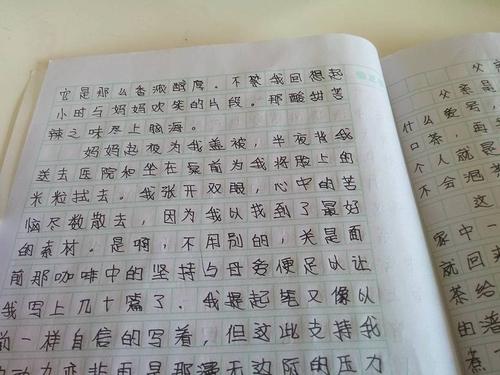 它是那么香浓醇厚。不禁我回想起
小时与妈妈欢笑的片段。那酸甜苦
辣之味尽上脑海。
妈妈起夜为我盖被，半夜背我
送去医院和坐在桌前为我将脸上的
米粒拭去。我张开双眼，心中的苦
恼尽数散去，因为我以找到了最好
的素材。是啊，不用别的，光是面
前那咖啡中的坚持与母爱便足以让
我写上几十篇了。我提起笔又像以
前一样自信的写着，但这此支持我
的动力变非再是那漫无边际的压力
父亲是
什么爱号，
口茶，再
个人就是
不会泡茶
这
家中一
就回来
茶给
由
煮一